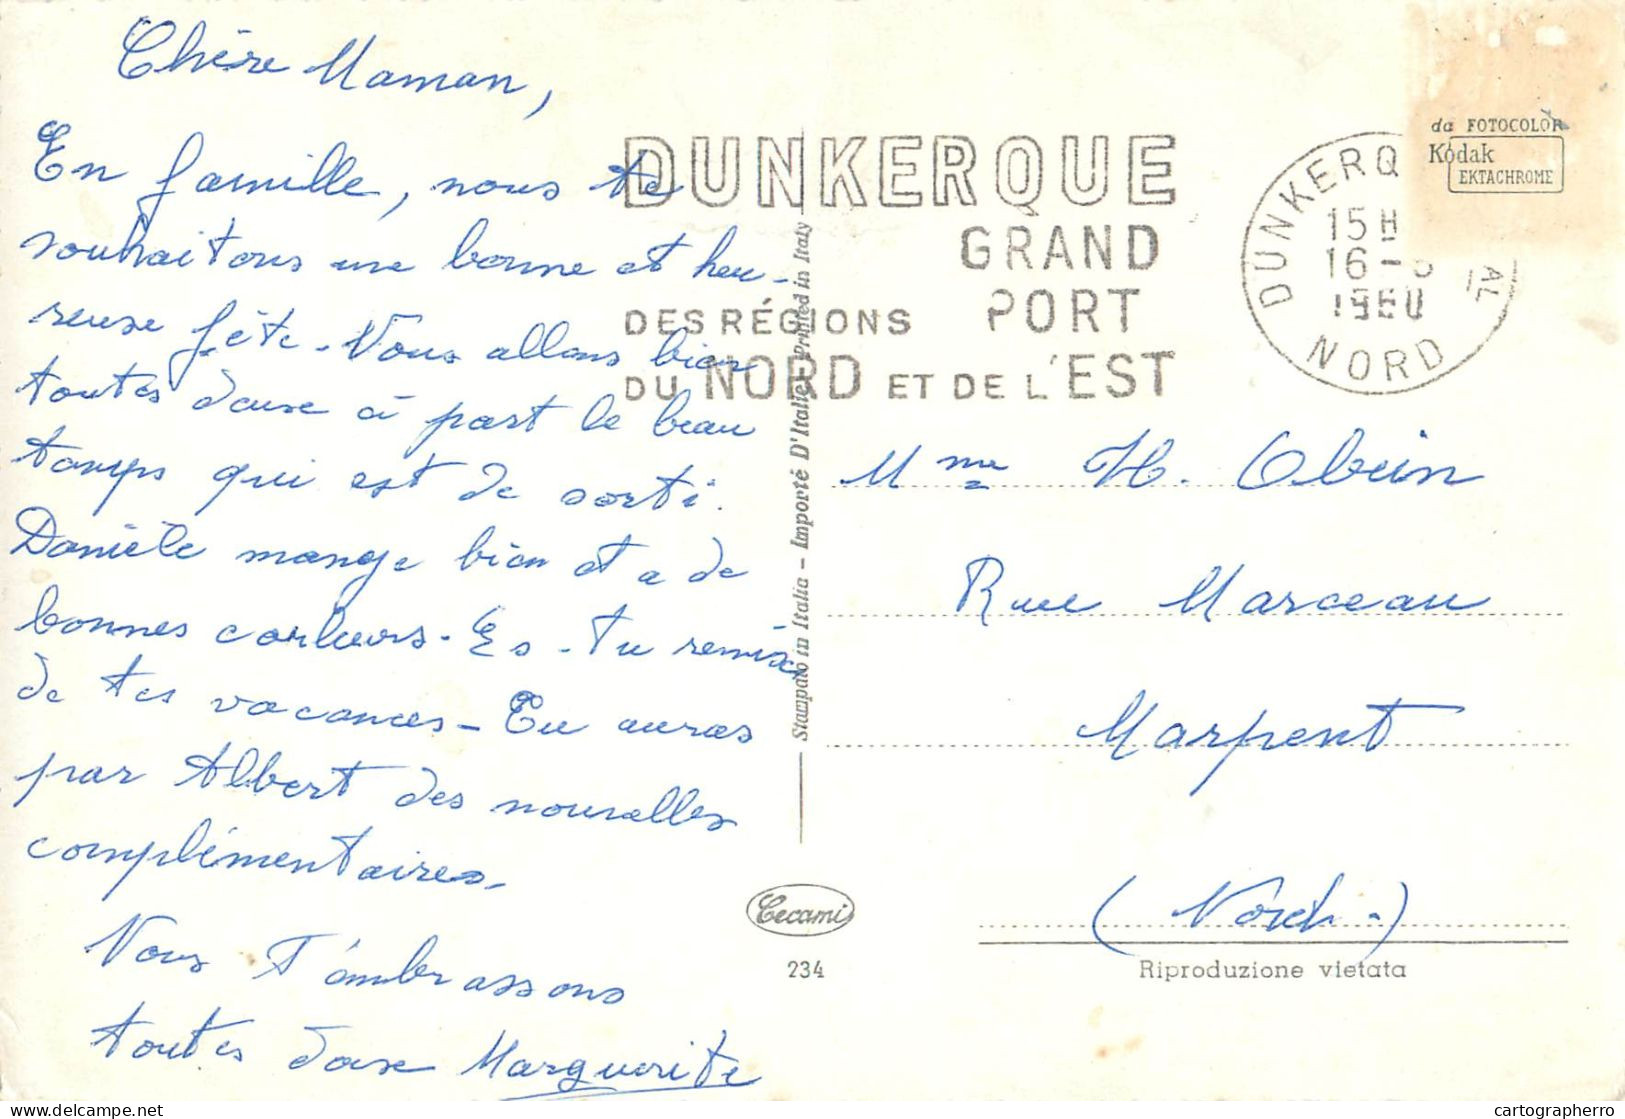 Chère Maman,
En famille, nous te
souhaitons une bonne et heu-
reuse fête. Nous allons bien
toutes deux à part le beau
temps qui est de sorti.
Danièle mange bien et a de
bonnes couleurs. Es-tu remise
de tes vacances - Tu auras
par Albert des nouvelles
complémentaires.
Nous t'embrassons
toutes deux Marguerite
DUNKERQUE
GRAND
DES RÉGIONS PORT
DU NORD ET DE L'EST
DUNKERQ
15H
16-
1960
AL
NORD
da FOTOCOLOR
Kodak
EKTACHROME
Mme H. Obein
Rue Marceau
Marpent
(Nord.)
Stampato in Italia - Importé D'Italie - Printed in Italy
Cecami
234
Riproduzione vietata
cartospherro